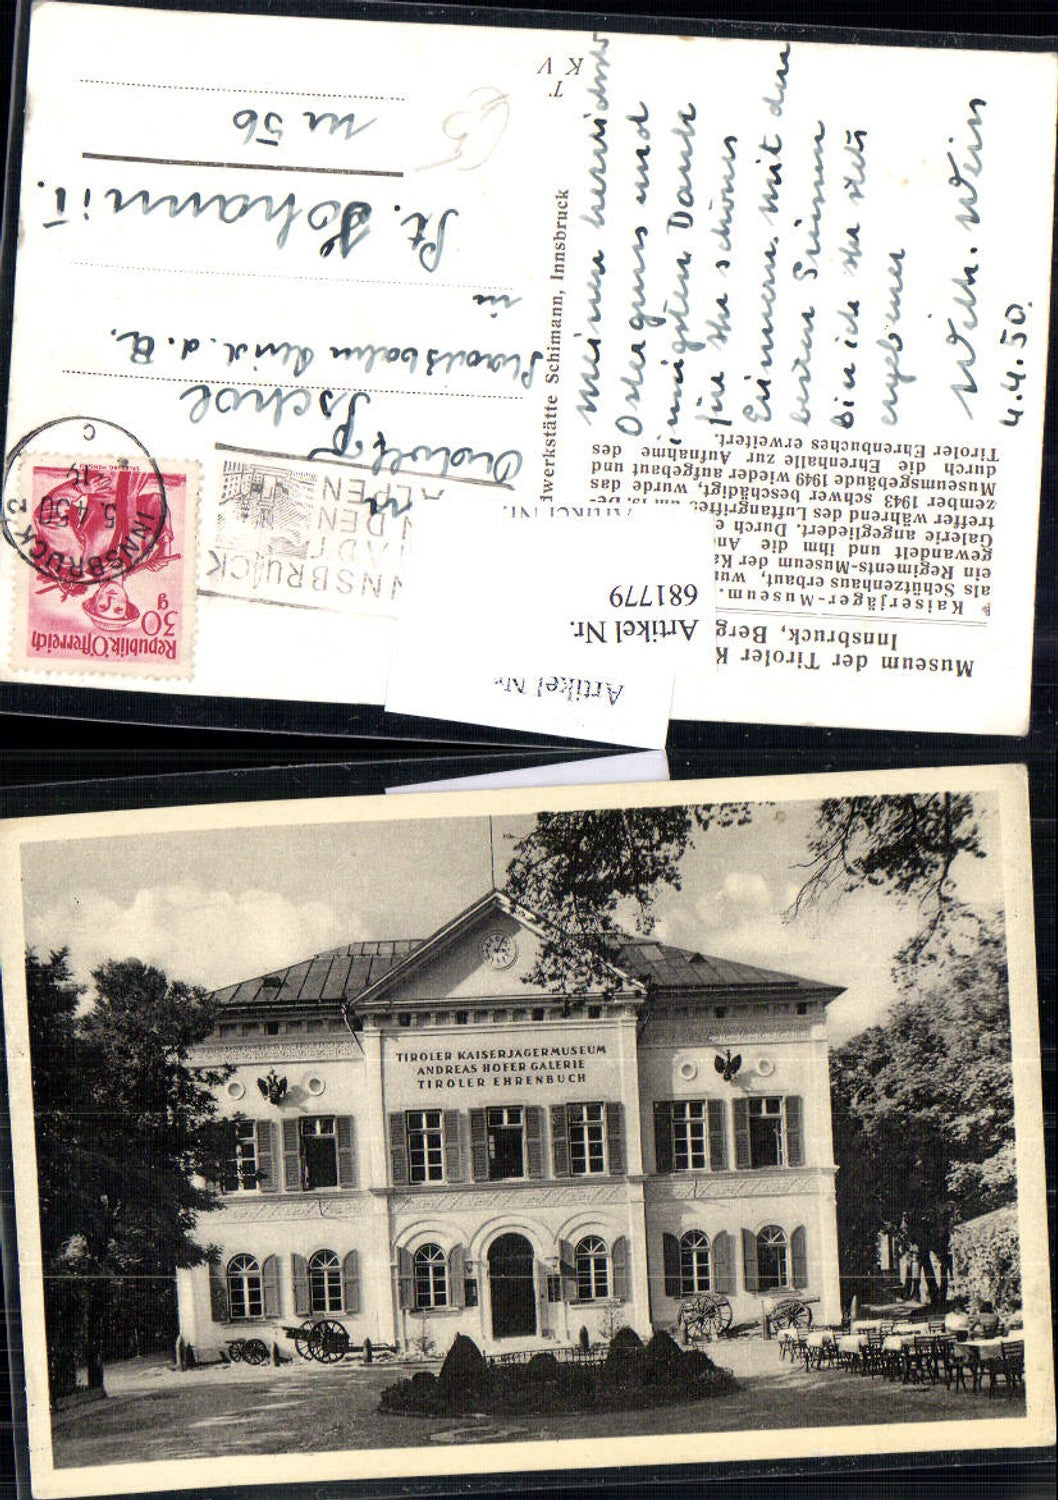 Museum der Tiroler K
Innsbruck, Berg
Kaiserjäger-Museum.
als Schützenhaus erbaut, wur
ein Regiments-Museum der Ka
gewandelt und ihm die An
Galerie angegliedert. Durch e
treffer während des Luftangriffes am 15. De-
zember 1943 schwer beschädigt, wurde das
Museumsgebäude 1949 wieder aufgebaut und
durch die Ehrenhalle zur Aufnahme des
Tiroler Ehrenbuches erweitert.
Meinen herzlichsten
Ostergruss und
innigsten Dank
für Ihr schönes
Erinnern. Mit den
besten Grüssen
bin ich Ihr stets
ergebener
Wilh. Weiss
4.4.50.
T
K V
lwerkstätte Schimann, Innsbruck
Republik Österreich
30
g
INNSBRUCK 2
5.4.50
19
C
INNSBRUCK
STADT
IN DEN
ALPEN
An
Rudolf
Pschol
Staatsbahn Bed. d. R.
in
St. Johann i. T.
Nr 56
Artikel Nr.
Artikel Nr.
681779
Artikel Nr.
TIROLER KAISERJÄGERMUSEUM
ANDREAS HOFER GALERIE
TIROLER EHRENBUCH